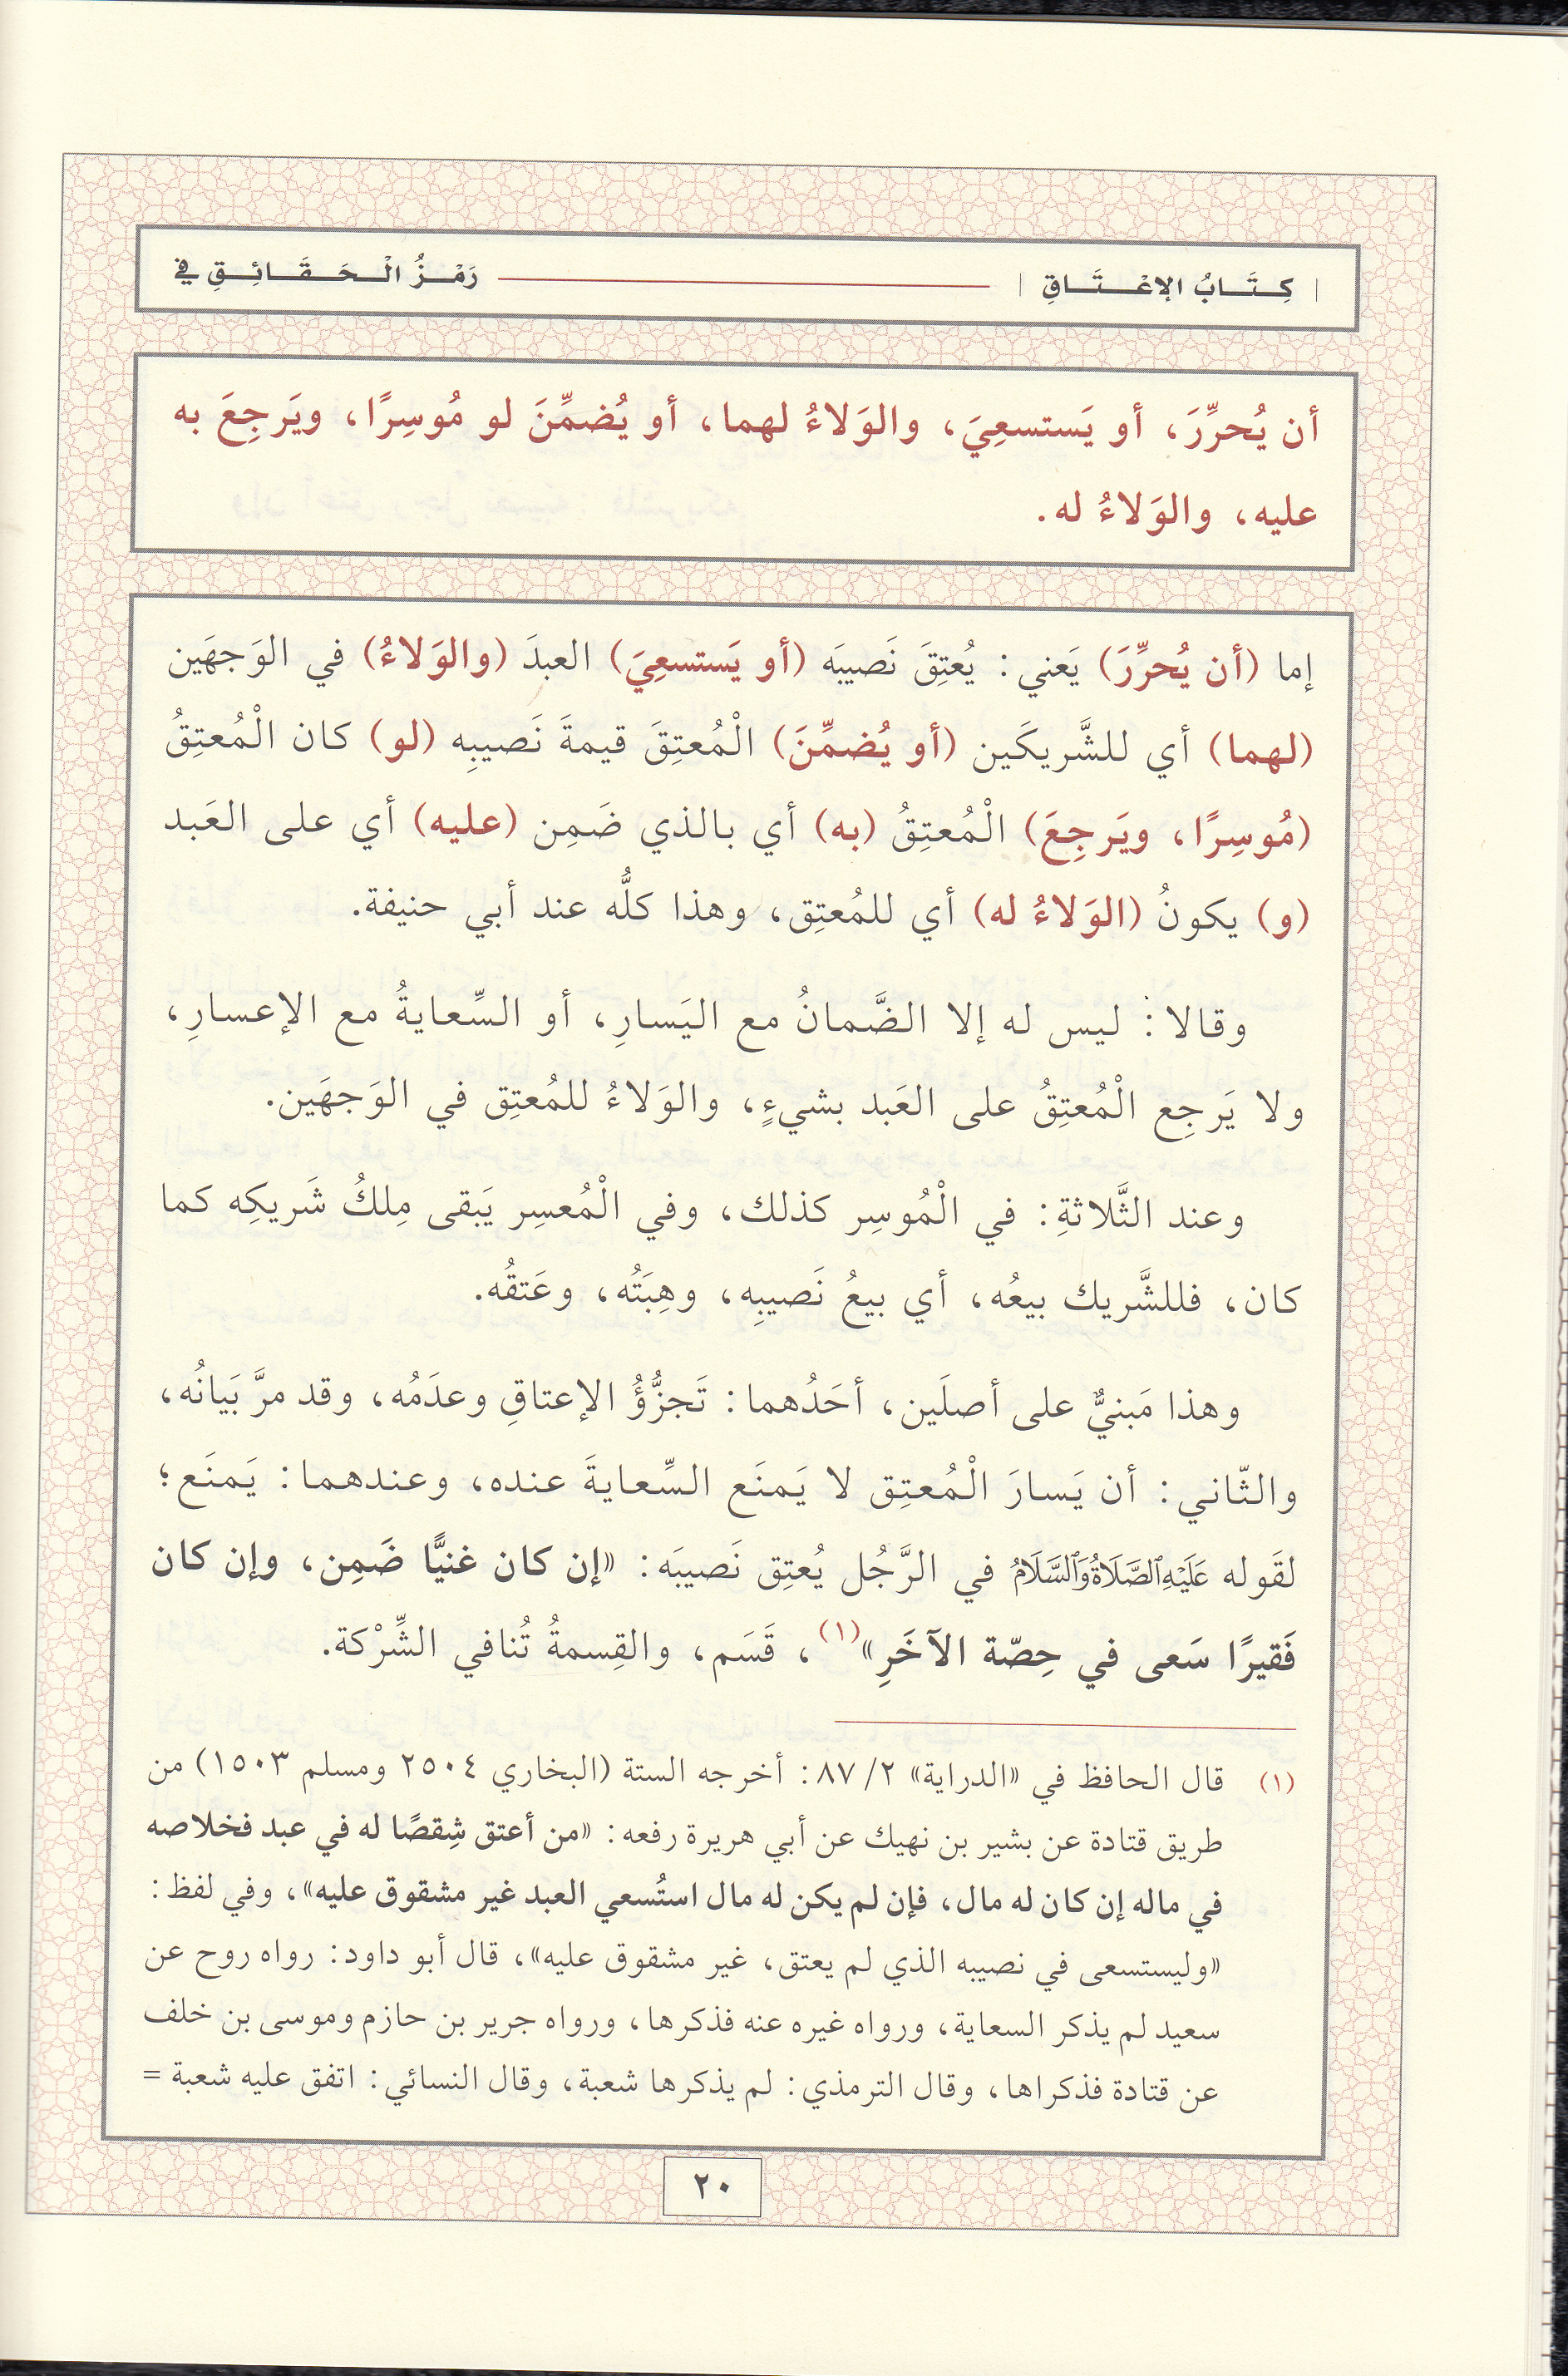 كِتَابُ الإعْتَاقِ رَمْزُ الْحَقَائِقِ في
أن يُحرِّرَ، أو يَستسعِيَ، والوَلاءُ لهما، أو يُضمِّنَ لو مُوسِرًا، ويَرجِعَ به
عليه، والوَلاءُ له.
إما (أن يُحرِّرَ) يَعني: يُعتِقَ نَصيبَه (أو يَستسعِيَ) العبدَ (والوَلاءُ) في الوَجهَين
(لهما) أي للشَّريكَين (أو يُضمِّنَ) الْمُعتِقَ قيمةَ نَصيبِه (لو) كان الْمُعتِقُ
(مُوسِرًا، ويَرجِعَ) الْمُعتِقُ (به) أي بالذي ضَمِن (عليه) أي على العَبد
(و) يكونُ (الوَلاءُ له) أي للمُعتِق، وهذا كلُّه عند أبي حنيفة.
وقالا: ليس له إلا الضَّمانُ مع اليَسارِ، أو السِّعايةُ مع الإعسارِ،
ولا يَرجِع الْمُعتِقُ على العَبد بشيءٍ، والوَلاءُ للمُعتِق في الوَجهَين.
وعند الثَّلاثةِ: في الْمُوسِر كذلك، وفي الْمُعسِر يَبقى مِلكُ شَريكِه كما
كان، فللشَّريك بيعُه، أي بيعُ نَصيبِه، وهِبَتُه، وعَتقُه.
وهذا مَبنيٌّ على أصلَين، أحَدُهما: تَجزُّؤُ الإعتاقِ وعدَمُه، وقد مرَّ بَيانُه،
والثّاني: أن يَسارَ الْمُعتِق لا يَمنَع السِّعايةَ عنده، وعندهما: يَمنَع؛
لقَوله عَلَيْهِ الصَّلَاةُ وَالسَّلَامُ في الرَّجُل يُعتِق نَصيبَه: «إن كان غنيًّا ضَمِن، وإن كان
فَقيرًا سَعى في حِصّة الآخَرِ»(١)، قَسَم، والقِسمةُ تُنافي الشِّرْكة.
(١) قال الحافظ في «الدراية» ٢/ ٨٧: أخرجه الستة (البخاري ٢٥٠٤ ومسلم ١٥٠٣) من
طريق قتادة عن بشير بن نهيك عن أبي هريرة رفعه: «من أعتق شِقصًا له في عبد فخلاصه
في ماله إن كان له مال، فإن لم يكن له مال استُسعي العبد غير مشقوق عليه»، وفي لفظ:
«وليستسعى في نصيبه الذي لم يعتق، غير مشقوق عليه»، قال أبو داود: رواه روح عن
سعيد لم يذكر السعاية، ورواه غيره عنه فذكرها، ورواه جرير بن حازم وموسى بن خلف
عن قتادة فذكراها، وقال الترمذي: لم يذكرها شعبة، وقال النسائي: اتفق عليه شعبة =
٢٠